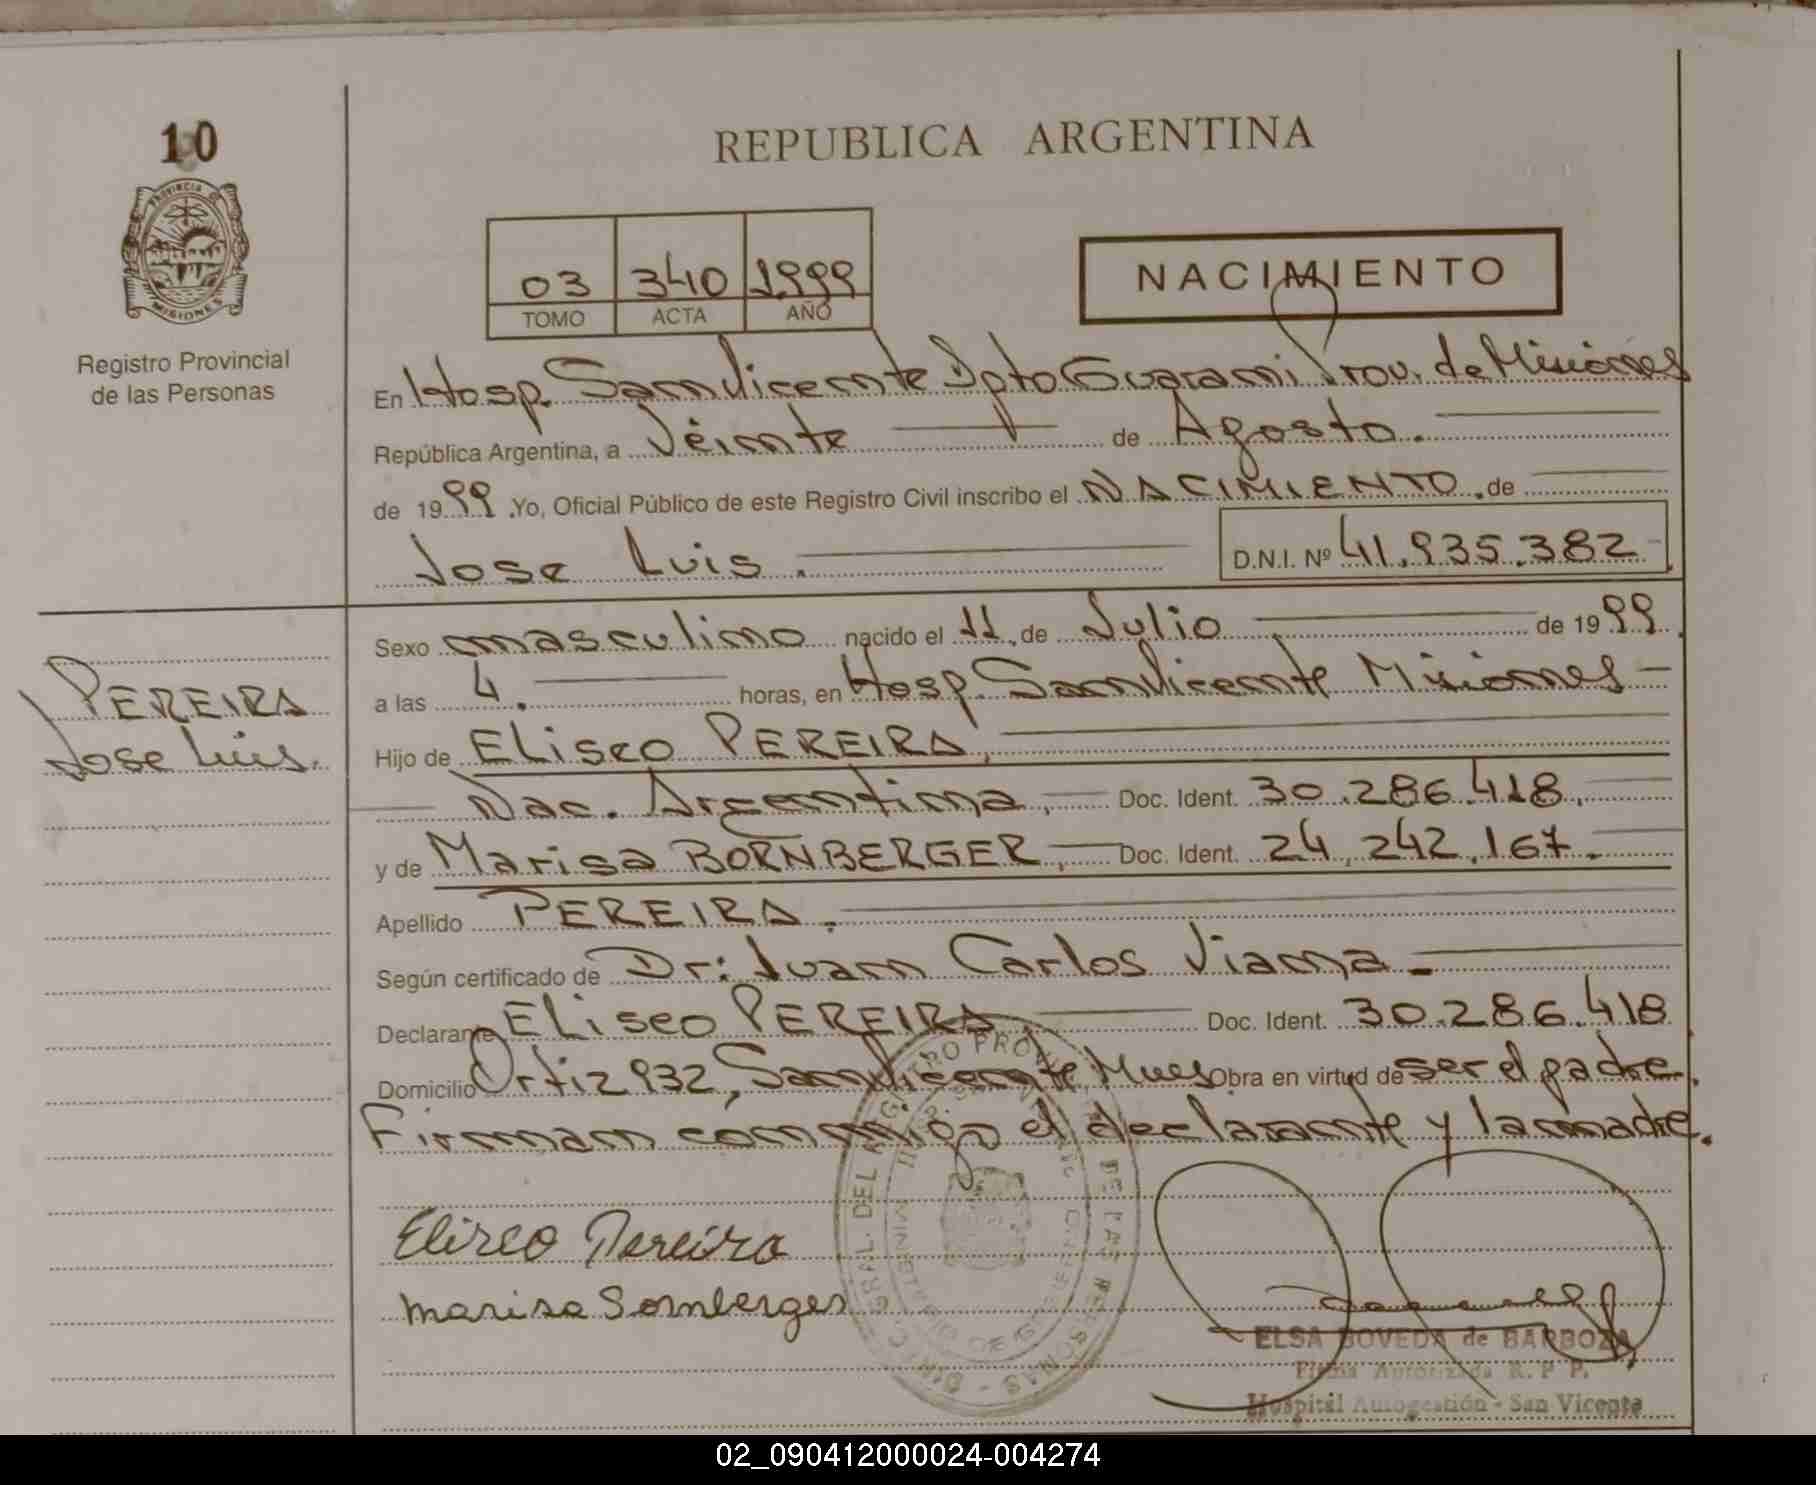 10
PROVINCIA DE
MISIONES
Registro Provincial
de las Personas
REPUBLICA ARGENTINA
03 340 1999
TOMO ACTA AÑO
NACIMIENTO
En Hosp. San Vicente Dpto Guarani Prov. de Misiones
República Argentina, a Veinte de Agosto.
de 1999 .Yo, Oficial Público de este Registro Civil inscribo el NACIMIENTO. de
Jose Luis. D.N.I. Nº 41.935.382
Sexo masculino nacido el 11. de Julio de 1999.
PEREIRA
Jose Luis.
a las 4. horas, en Hosp. San Vicente Misiones
Hijo de Eliseo PEREIRA,
Nac. Argentina, Doc. Ident. 30.286.418,
y de Marisa BORNBERGER, Doc. Ident. 24.242.167.
Apellido PEREIRA.
Según certificado de Dr: Juan Carlos Viana.
Declarante Eliseo PEREIRA Doc. Ident. 30.286.418
Domicilio Ortiz 932, San Vicente Mnes Obra en virtud de ser el padre.
Firman conmigo el declarante y la madre.
Eliseo Pereira
Marisa Bornberger
ELSA BOVEDA de BARBOZA
Firma Autorizada R. P P.
Hospital Autogestión - San Vicente
02_090412000024-004274